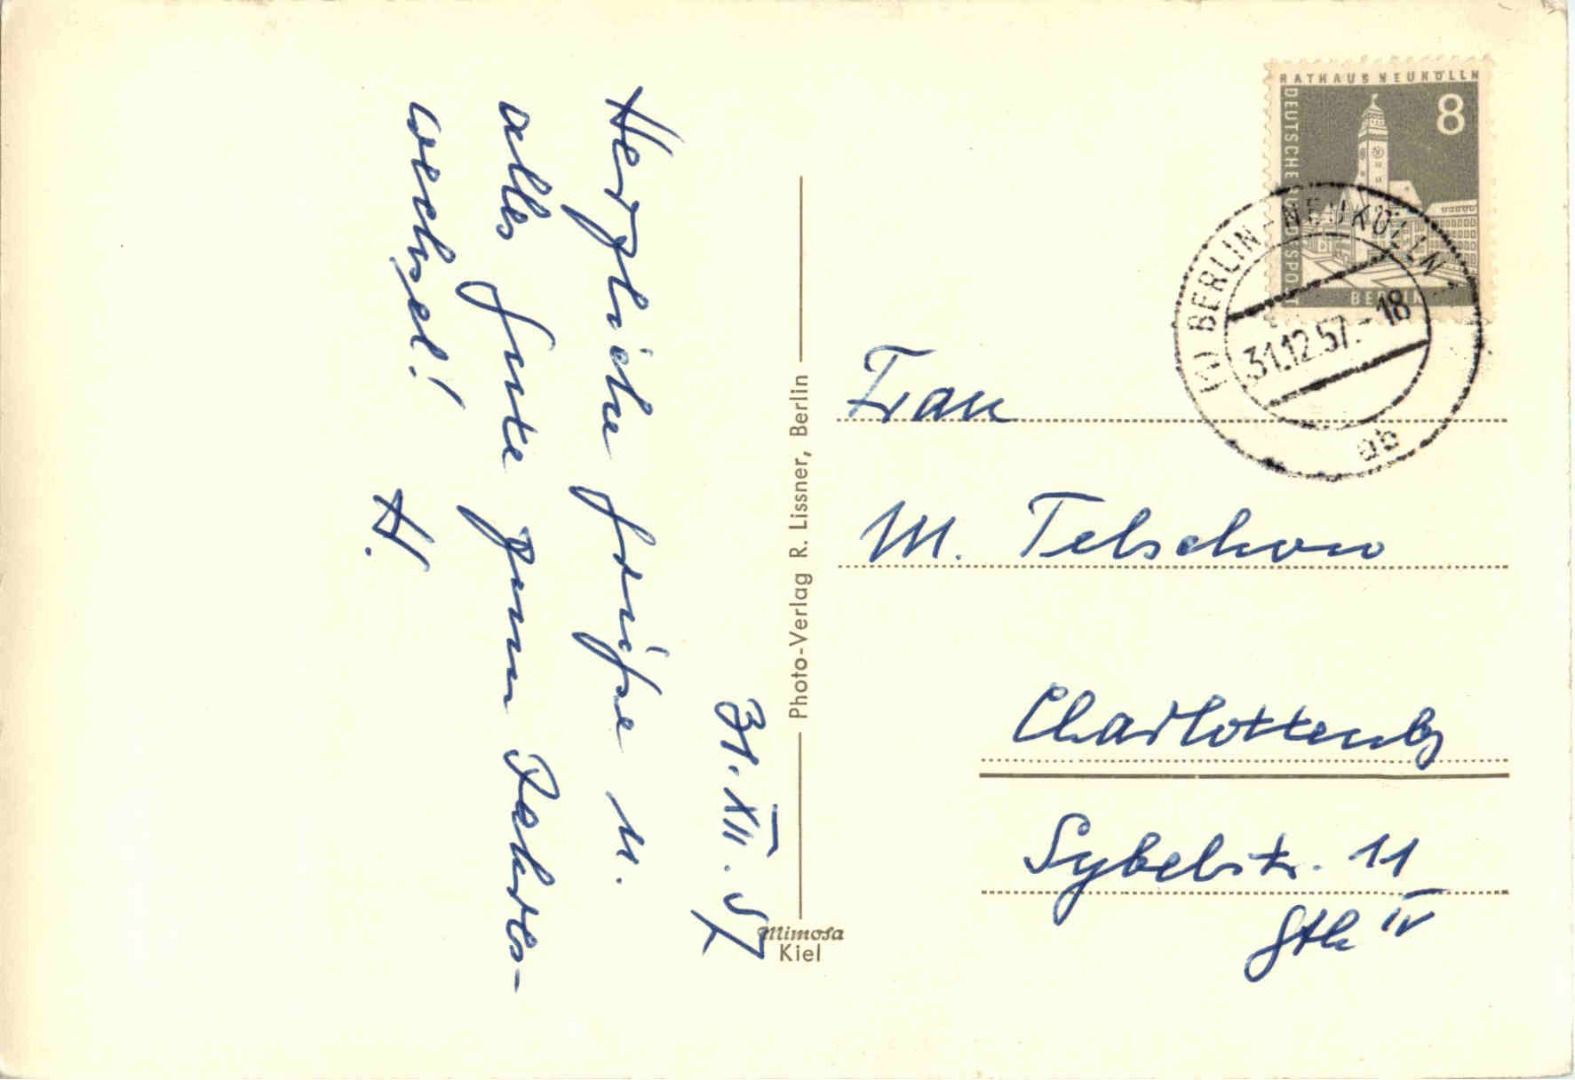 31.XII.57
Herzliche Grüße u.
alles Gute zum Jahres-
wechsel!
H.
Photo-Verlag R. Lissner, Berlin
Mimosa
Kiel
RATHAUS NEUKÖLLN
8
DEUTSCHE BUNDESPOST
BERLIN
(1) BERLIN-NEUKÖLLN 1
31.12.57.-18
ab
Frau
M. Telschow
Charlottenbg
Sybelstr. 11
Gth IV